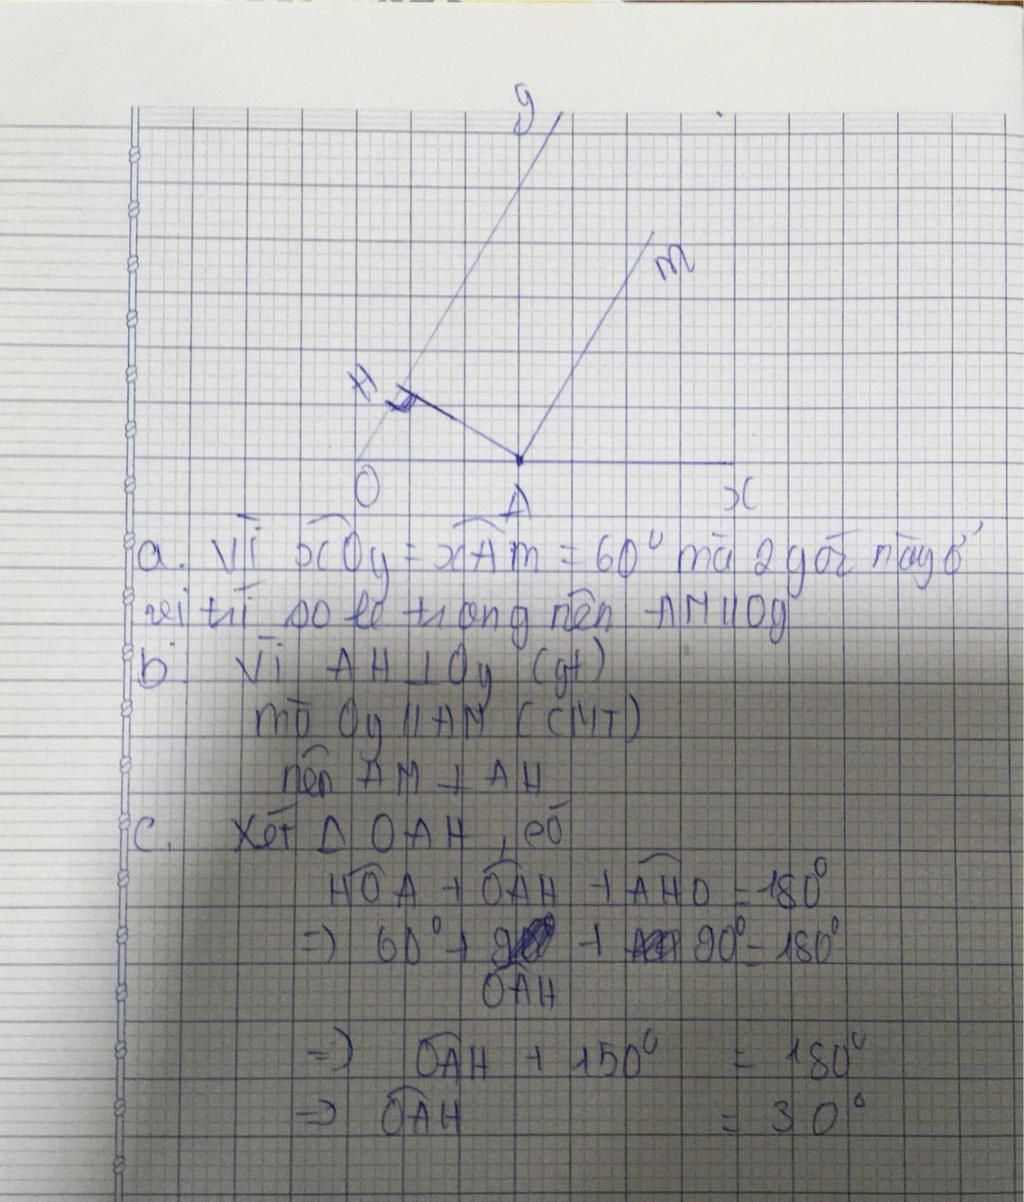 y
m
H
O
A
x
a. Vì xOy = xAm = 60° mà 2 góc này ở
vị trí so le trong nên AM // Oy
b. Vì AH ⊥ Oy (gt)
mà Oy // AM (CMT)
nên AM ⊥ AH
c. Xét Δ OAH, có
HOA + OAH + AHO = 180°
=> 60° + + 90° = 180°
OAH
=> OAH + 150° = 180°
=> OAH = 30°